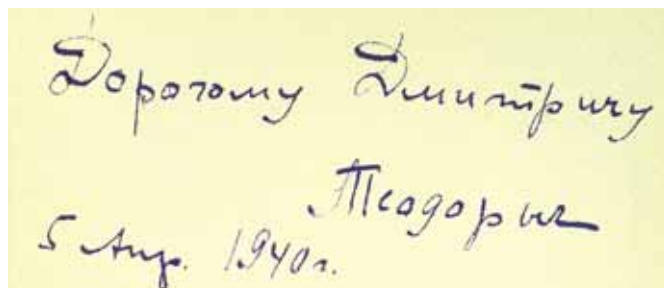 Дорогому Дмитричу
Теодорыч
5 Апр. 1940 г.